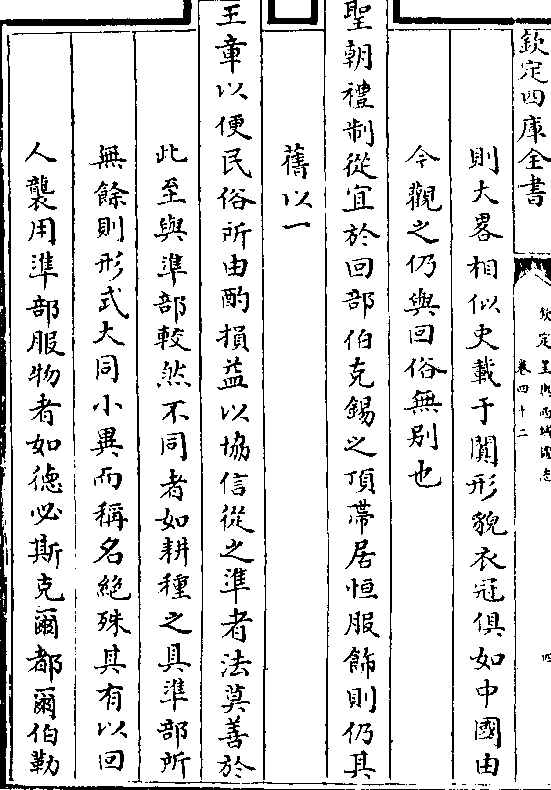 欽定四庫全書
欽定皇輿西域圖志
卷四十二
四
則大畧相似史載于闐形貌衣冠俱如中國由
今觀之仍與回俗無别也
聖朝禮制從宜於回部伯克錫之頂帶居恒服飾則仍其
舊以一
王章以便民俗所由酌損益以協信從之準者法莫善於
此至與準部較然不同者如耕種之具準部所
無餘則形式大同小異而稱名絶殊其有以回
人襲用準部服物者如德必斯克爾都爾伯勒